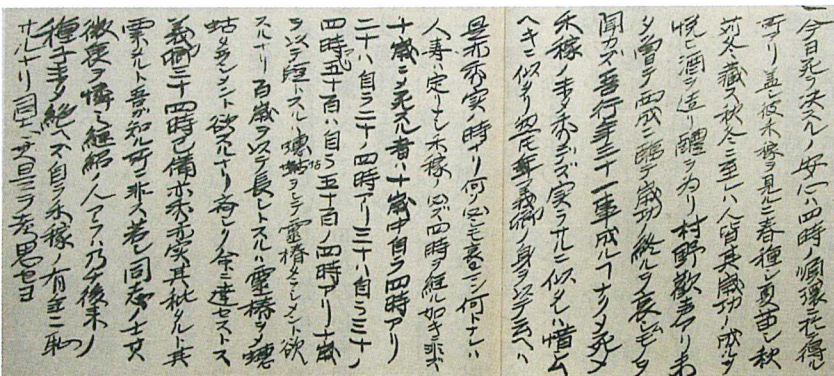 一今日死ヲ決スルノ安心ハ四時ノ順環ニ於テ得ル
所アリ蓋シ彼禾稼ヲ見ルニ春種シ夏苗シ秋
苅冬蔵ス秋冬ニ至レハ人皆其歳功ノ成ルヲ
悦ヒ酒ヲ造リ醴ヲ為リ村野歓声アリ未
タ曽テ西成ニ臨テ歳功ノ終ルヲ哀シムモノヲ
聞カズ吾行年三十一事成ルヿナクシテ死シテ
禾稼ノ未タ秀テズ実ラサルニ似タレハ惜シム
ヘキニ似タリ然𪜈義卿ノ身ヲ以テ云ヘハ
是亦秀実ノ時ナリ何ソ必シモ哀マン何トナレハ
人寿ハ定リナシ禾稼ノ必ス四時ヲ経ル如キニ非ズ
十歳ニシテ死スル者ハ十歳中自ラ四時アリ
二十ハ自ラ二十ノ四時アリ三十ハ自ラ三十ノ
四時アリ五十百ハ自ラ五十百ノ四時アリ十歳
ヲ以テ短トスルハ蟪蛄ヲシテ霊椿タラシメント欲
スルナリ百歳ヲ以テ長シトスルハ霊椿ヲシテ蟪
蛄タラシメント欲スルナリ斉シク命ニ達セストス
義卿三十四時已備亦秀亦実其秕タルト其
粟タルト吾カ知ル所ニ非ス若シ同志ノ士其
微衷ヲ憐ミ継紹ノ人アラハ乃チ後来ノ
種子未タ絶ヘズ自ラ禾稼ノ有年ニ恥
サルナリ同志其是ヲ考思セヨ